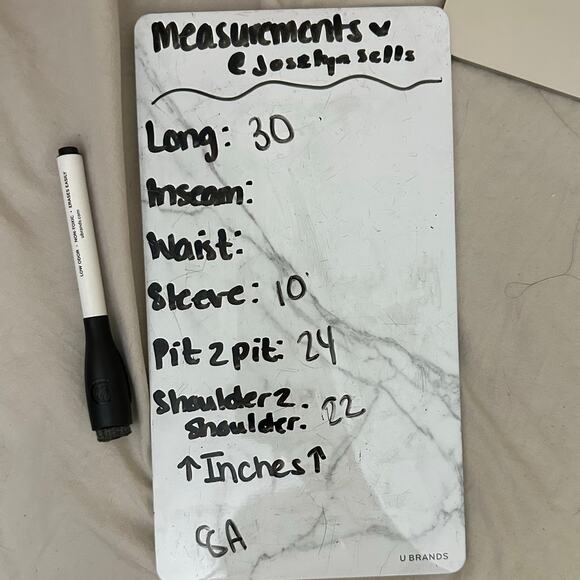 measurements
@Joselynsells
Long: 30
Inseam:
Waist:
Sleeve: 10
Pit 2 pit: 24
Shoulder 2.
Shoulder. 22
↑Inches↑
8A
U BRANDS
LOW ODOR • NON TOXIC • ERASES EASILY
ubrands.com